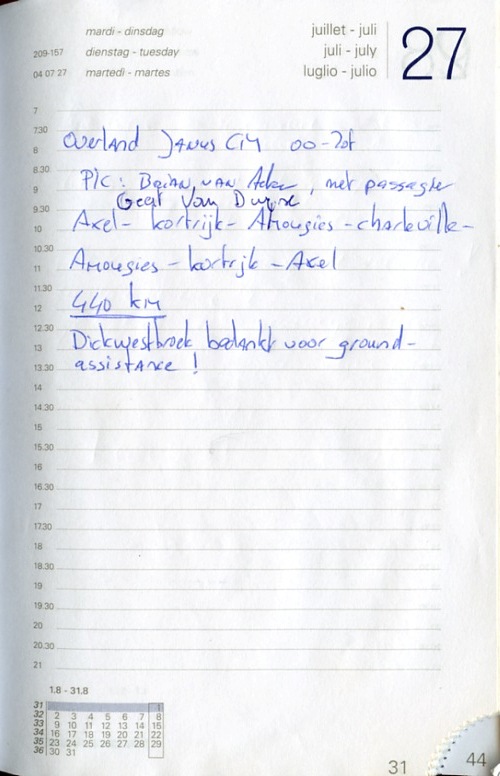 mardi - dinsdag
juillet - juli
27
209-157
dienstag - tuesday
juli - july
04 07 27
martedì - martes
luglio - julio
7
7.30
8
Overland Janus CM 00-Zot
8.30
PIC: Brian van Acker, met passagier
9
Geert Van Duyse
9.30
10
Axel - kortrijk - Amougies - charleville -
10.30
11
Amougies - kortrijk - Axel
11.30
12
440 km
12.30
13
Dickwestbroek bedankt voor ground-
13.30
assistance !
14
14.30
15
15.30
16
16.30
17
17.30
18
18.30
19
19.30
20
20.30
21
1.8 - 31.8
31 1
32 2 3 4 5 6 7 8
33 9 10 11 12 13 14 15
34 16 17 18 19 20 21 22
35 23 24 25 26 27 28 29
36 30 31
31
44